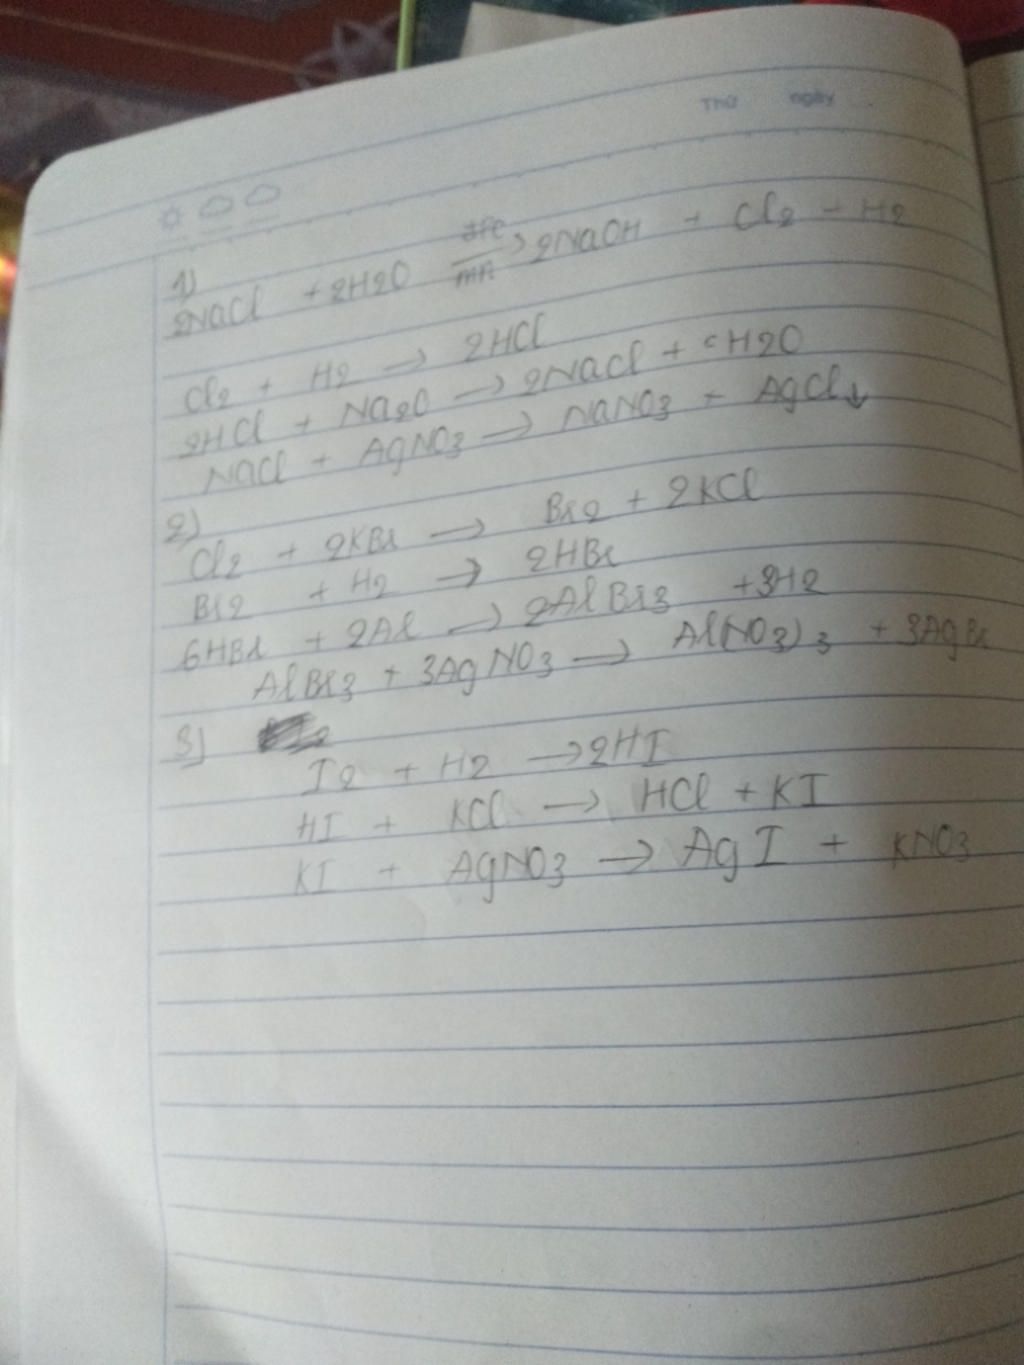 Thứ ngày
1)
2NaCl + 2H2O đpc/mn → 2NaOH + Cl2 + H2
Cl2 + H2 → 2HCl
2HCl + Na2O → 2NaCl + H2O
NaCl + AgNO3 → NaNO3 + AgCl↓
2)
Cl2 + 2KBr → Br2 + 2KCl
Br2 + H2 → 2HBr
6HBr + 2Al → 2AlBr3 + 3H2
AlBr3 + 3AgNO3 → Al(NO3)3 + 3AgBr
3)
I2 + H2 → 2HI
HI + KCl → HCl + KI
KI + AgNO3 → AgI + KNO3